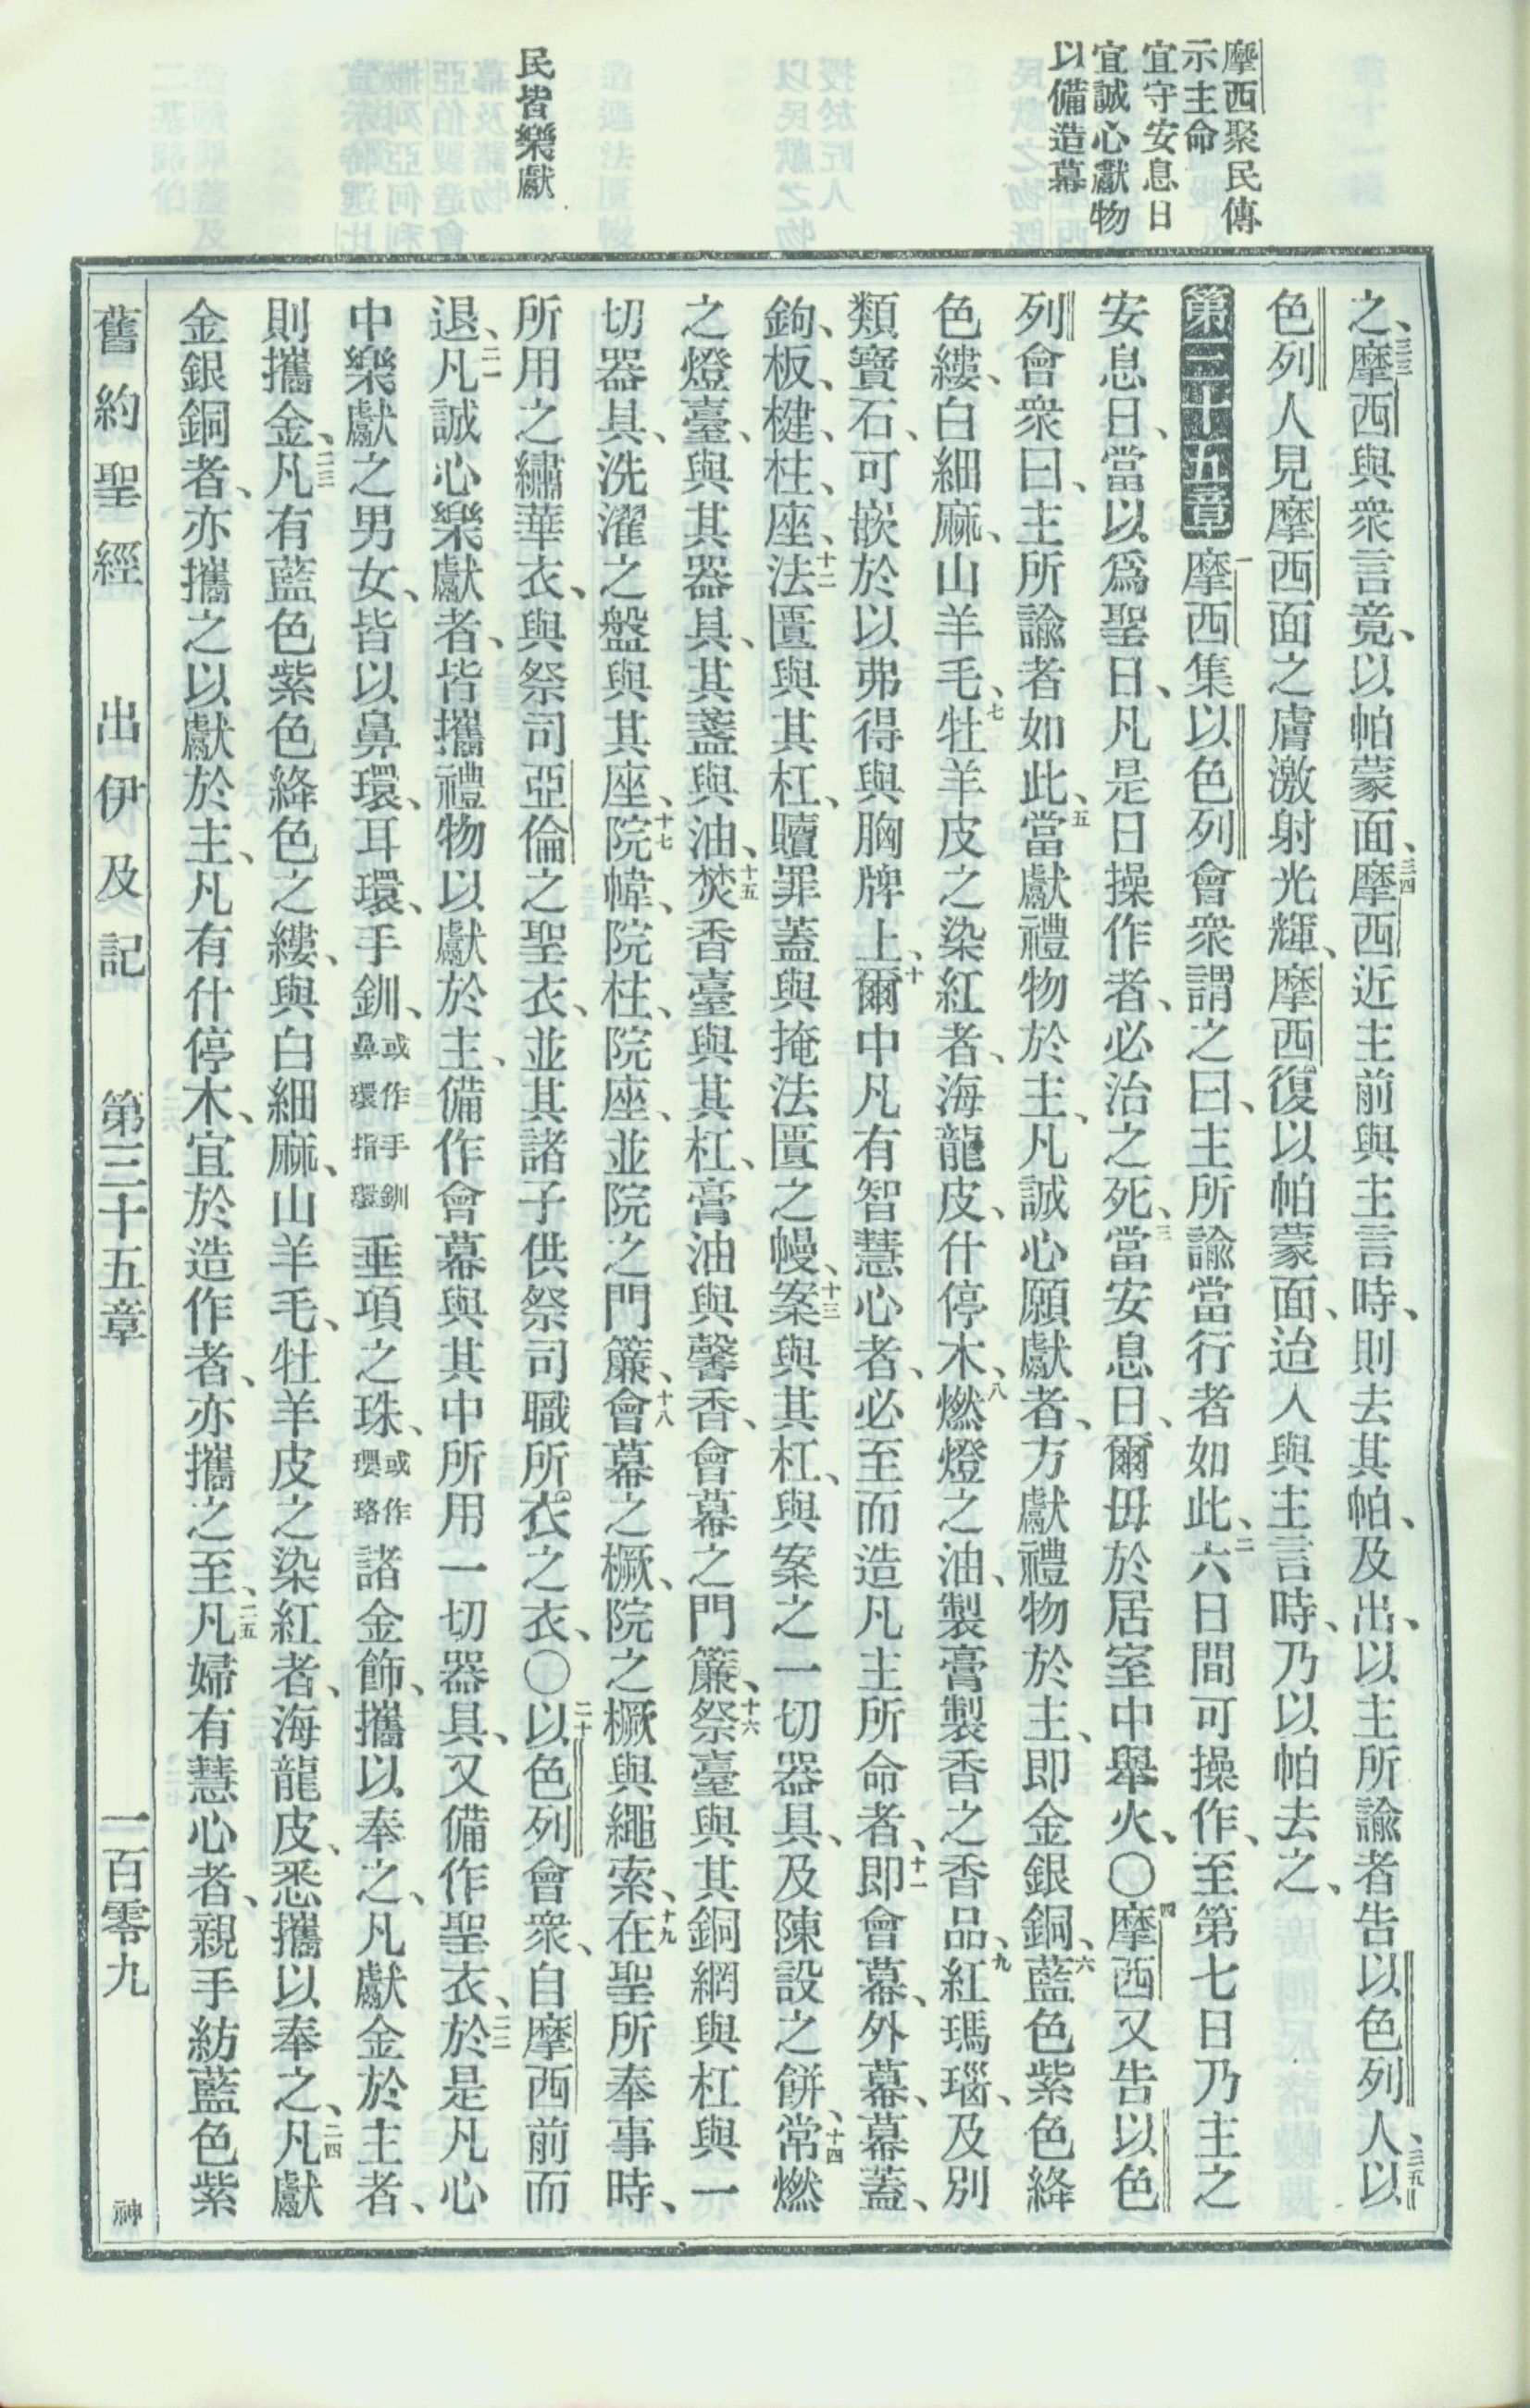 摩西聚民傳
示主命
宜守安息日
宜誠心獻物
以備造幕
民皆樂獻
之、三三摩西與衆言竟、以帕蒙面、三四摩西近主前與主言時、則去其帕、及出、以主所諭者告以色列人、三五以
色列人見摩西面之膚激射光輝、摩西復以帕蒙面、迨入與主言時、乃以帕去之、
第三十五章 一摩西集以色列會衆謂之曰、主所諭當行者如此、二六日間可操作、至第七日乃主之
安息日、當以爲聖日、凡是日操作者、必治之死、三當安息日、爾毋於居室中舉火、〇四摩西又告以色
列會衆曰、主所諭者如此、五當獻禮物於主、凡誠心願獻者、方獻禮物於主、即金銀銅、六藍色紫色絳
色縷、白細麻、山羊毛、七牡羊皮之染紅者、海龍皮、什停木、八燃燈之油、製膏製香之香品、九紅瑪瑙、及別
類寶石、可嵌於以弗得與胸牌上、十爾中凡有智慧心者、必至而造凡主所命者、十一即會幕、外幕、幕蓋、
鉤、板、楗、柱、座、十二法匱與其杠、贖罪蓋與掩法匱之幔、十三案與其杠、與案之一切器具、及陳設之餅、十四常燃
之燈臺、與其器具、其盞與油、十五焚香臺與其杠、膏油與馨香、會幕之門簾、十六祭臺與其銅網與杠與一
切器具、洗濯之盤與其座、十七院幃、院柱、院座、並院之門簾、十八會幕之橛、院之橛與繩索、十九在聖所奉事時、
所用之繡華衣、與祭司亞倫之聖衣、並其諸子供祭司職所衣之衣、〇二十以色列會衆、自摩西前而
退、二一凡誠心樂獻者、皆攜禮物以獻於主、備作會幕與其中所用一切器具、又備作聖衣、二二於是凡心
中樂獻之男女、皆以鼻環、耳環、手釧、或作手釧鼻環指環垂項之珠、或作瓔珞諸金飾、攜以奉之、凡獻金於主者、
則攜金、二三凡有藍色紫色絳色之縷、與白細麻、山羊毛、牡羊皮之染紅者、海龍皮、悉攜以奉之、二四凡獻
金銀銅者、亦攜之以獻於主、凡有什停木、宜於造作者、亦攜之至、二五凡婦有慧心者、親手紡藍色紫
舊約聖經 出伊及記 第三十五章 一百零九 神